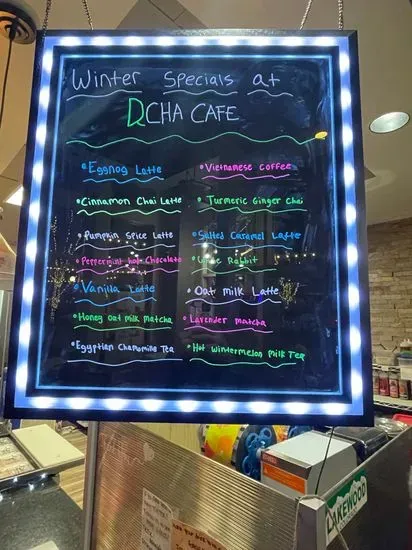 Winter Specials at
DCHA CAFE
• Eggnog Latte
• Cinnamon Chai Latte
• Pumpkin Spice Latte
• Peppermint hot Chocolate
• Vanilla Latte
• Honey oat milk matcha
• Egyptian Chamomile Tea
• Vietnamese coffee
• Turmeric Ginger Chai
• Salted Caramel Latte
Rabbit
• Oat milk Latte
• Lavender matcha
• Hot wintermelon milk Tea
LAKEWOOD